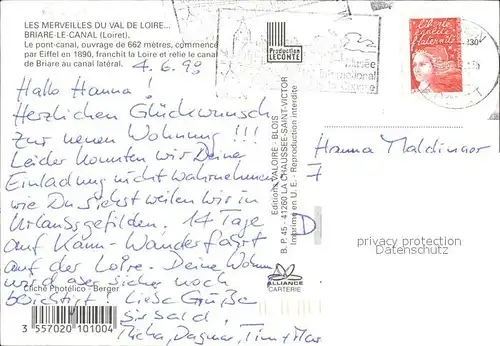 LES MERVEILLES DU VAL DE LOIRE...
BRIARE-LE-CANAL (Loiret).
Le pont-canal, ouvrage de 662 mètres, commencé
par Eiffel en 1890, franchit la Loire et relie le canal
de Briare au canal latéral.
4.6.98
Hallo Hanna!
Herzlichen Glückwunsch
zur neuen Wohnung!!!
Leider konnten wir Deine
Einladung nicht wahrnehmen,
wie Du siehst weilen wir in
Urlaubsgefilden. 14 Tage
auf Kanu-Wanderfahrt
auf der Loire. Deine Wohn.
wird aber sicher noch
besichtigt! Liebe Grüße
bis bald!
Micha, Dagmar, Tim + Mar
Cliché Photélico - Berger
3 557020 101004
Production
LECONTE
Editions VALOIRE - BLOIS
B. P. 45 - 41260 LA CHAUSSÉE-SAINT-VICTOR
Imprimé en U. E. - Reproduction interdite
ALLIANCE
CARTERIE
Liberté
égalité
fraternité
Hanna Maldinger
D
privacy protection
Datenschutz